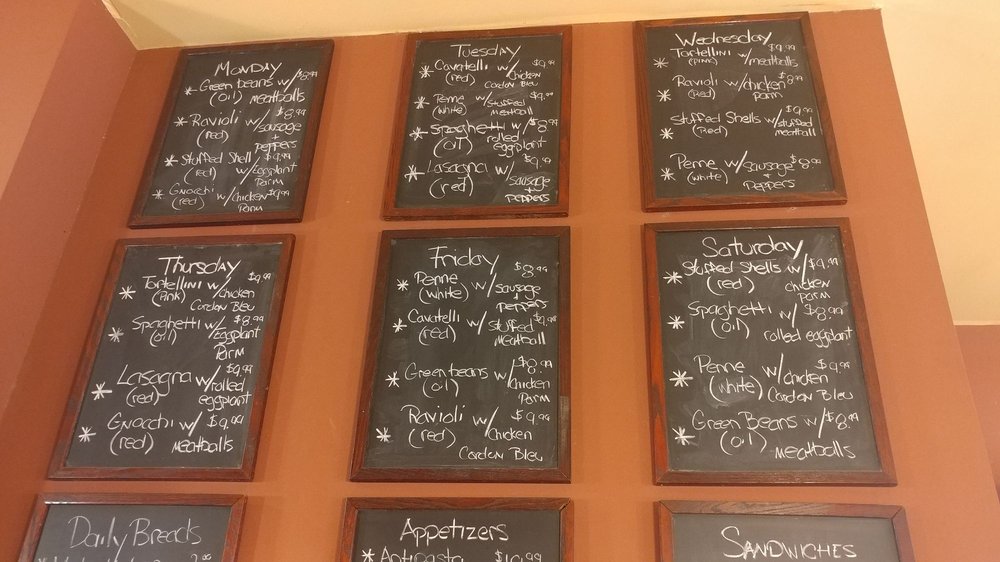 Monday
* Green beans w/ $8.99
(oil) meatballs
* Ravioli w/ $8.99
(red) sausage
+ peppers
* Stuffed Shell w/ $9.99
(red) Eggplant
Parm
* Gnocchi w/ chicken $9.99
(red) Parm
Tuesday
* Cavatelli w/ $9.99
(red) chicken
Cordon Bleu
* Penne w/ stuffed $9.99
(white) meatball
* Spaghetti w/ $8.99
(oil) rolled
eggplant
* Lasagna w/ $9.99
(red) sausage
+ peppers
Wednesday
* Tortellini w/ $9.99
(pink) meatballs
* Ravioli w/ chicken $8.99
(red) parm
* Stuffed Shells w/ stuffed $9.99
(red) meatball
* Penne w/ sausage $8.99
(white) + peppers
Thursday
* Tortellini w/ chicken $9.99
(pink) Cordon Bleu
* Spaghetti w/ $8.99
(oil) Eggplant
Parm
* Lasagna w/ rolled $9.99
(red) eggplant
* Gnocchi w/ $9.99
(red) meatballs
Friday
* Penne $8.99
(white) w/ sausage
+ peppers
* Cavatelli w/ stuffed $9.99
(red) meatball
* Green beans w/ $8.99
(oil) chicken
Parm
* Ravioli w/ $9.99
(red) chicken
Cordon Bleu
Saturday
* Stuffed Shells w/ $9.99
(red) chicken
parm
* Spaghetti w/ $8.99
(oil) rolled eggplant
* Penne w/ chicken $9.99
(white) Cordon Bleu
* Green Beans w/ $8.99
(oil) meatballs
Daily Breads
Appetizers
* Antipasto
Sandwiches